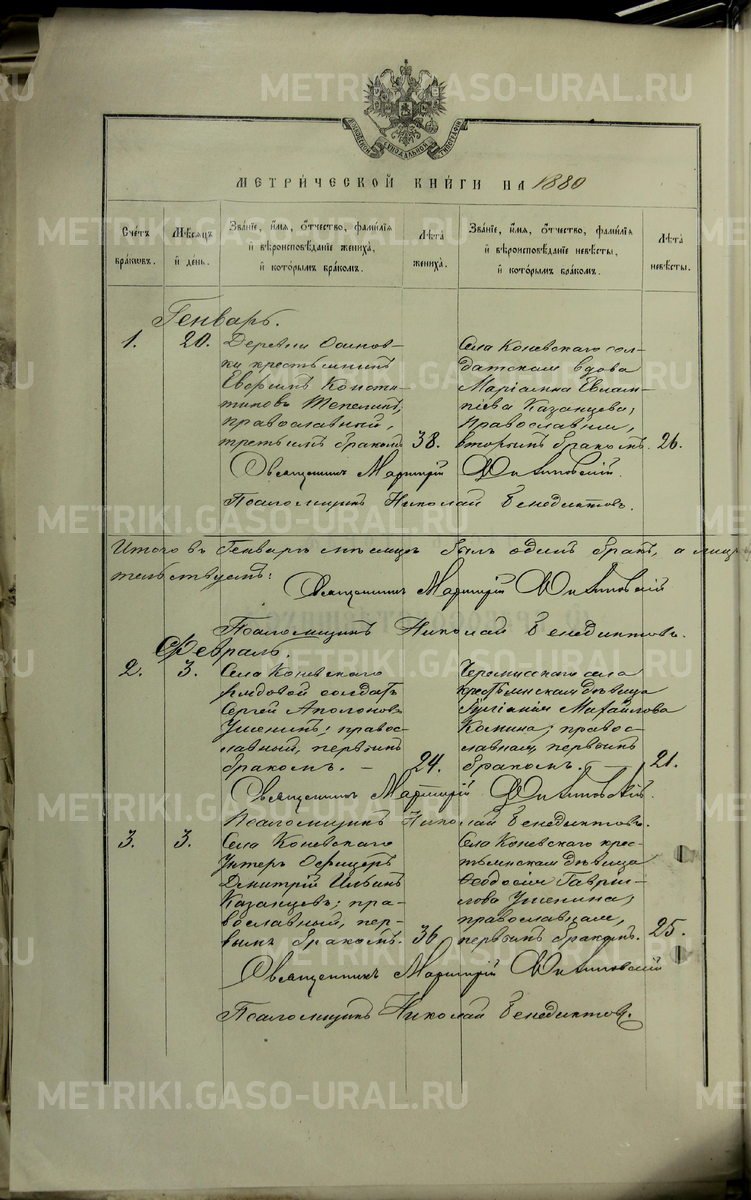 METRIKI.GASO-URAL.RU
МОСКОВСКОЙ СѴНОДАЛЬНОЙ ТИПОГРАФІИ
МЕТРИЧЕСКОЙ КНИГИ НА 1880
Счетъ браковъ.
Мѣсяцъ и день.
Званіе, имя, отчество, фамилія и вѣроисповѣданіе жениха, и которымъ бракомъ.
Лѣта жениха.
Званіе, имя, отчество, фамилія и вѣроисповѣданіе невѣсты, и которымъ бракомъ.
Лѣта невѣсты.
Генварь.
1. 20.
Деревни Осинов-
ки крестьянинъ
Евфимъ Конста-
тиновъ Тепелинъ,
православный,
третьимъ бракомъ 38.
Села Коневскаго сол-
датская вдова
Маріанна Евлам-
піева Казанцева,
Православная,
вторымъ бракомъ. 26.
Священникъ Мартирій
Псаломщикъ Николай Бенедиктовъ.
Итого въ Генварѣ мѣсяцѣ былъ одинъ бракъ, а
Священникъ Мартирій
Псаломщикъ Николай Бенедиктовъ.
Февраль.
2. 3.
Села Коневскаго
рядовой солдатъ
Сергей Аполоновъ
Ушенинъ; право-
славный, первымъ
бракомъ. — 24.
Черемисскаго села
крестьянская дѣвица
Іуліанія Михайлова
Комина; правос-
лавная, первымъ
бракомъ. — 21.
Священникъ Мартирій
Псаломщикъ Николай Бенедиктовъ.
3. 3.
Села Коневскаго
Унтеръ Офицеръ
Дмитрій Ильинъ
Казанцевъ; пра-
вославный, пер-
вымъ бракомъ. 36
Села Коневскаго крес-
тьянская дѣвица
Ѳеодосія Гаврі-
лова Ушенина;
православная,
первымъ бракомъ. 25.
Священникъ Мартирій
Псаломщикъ Николай Бенедиктовъ.